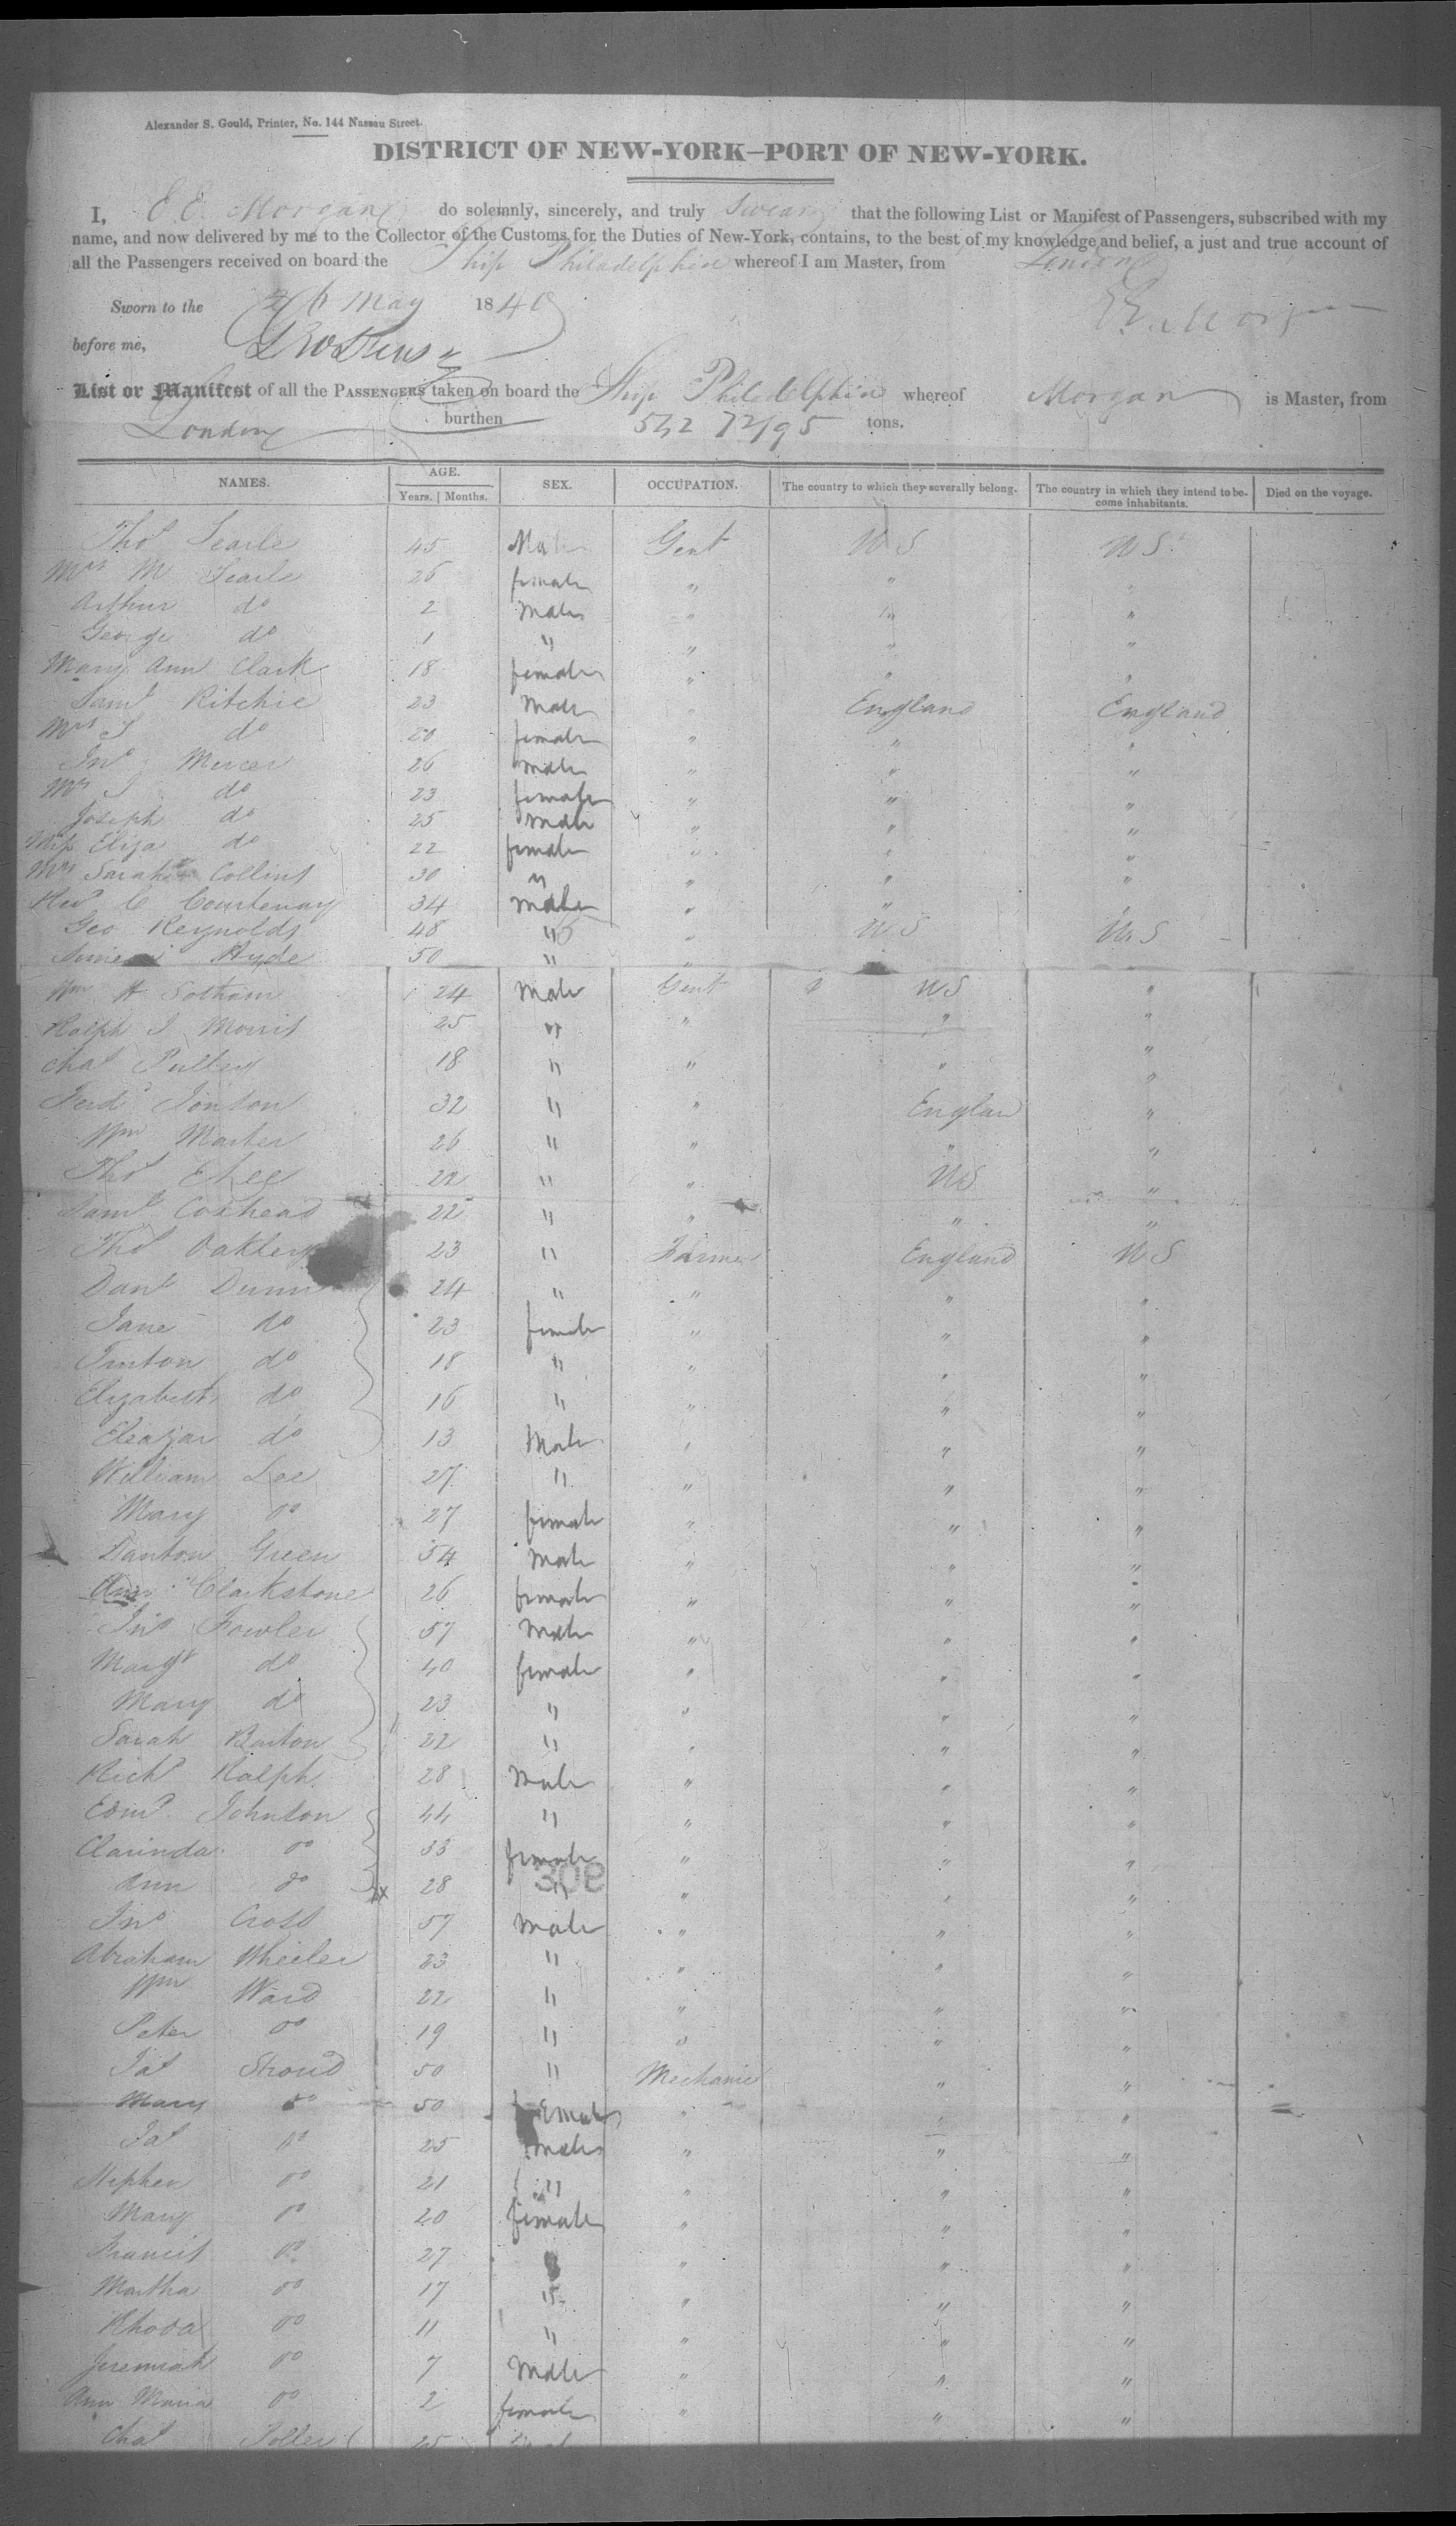 Alexander S. Gould, Printer, No. 144 Nassau Street.
DISTRICT OF NEW-YORK—PORT OF NEW-YORK.
I, E. E. Morgan do solemnly, sincerely, and truly swear that the following List or Manifest of Passengers, subscribed with my
name, and now delivered by me to the Collector of the Customs for the Duties of New-York, contains, to the best of my knowledge and belief, a just and true account of
all the Passengers received on board the Ship Philadelphia whereof I am Master, from London
Sworn to the May 1840
E E Morgan
before me,
List or Manifest of all the PASSENGERS taken on board the Ship Philadelphia whereof Morgan is Master, from
London burthen 542 72/95 tons.
NAMES. AGE. Years. | Months. SEX. OCCUPATION. The country to which they severally belong. The country in which they intend to become inhabitants. Died on the voyage.
Thos Searle 45 Male Gent U S U S
Mrs M Searle 26 female " " "
Arthur do 2 Male " " "
George do 1 " " " "
Mary Ann Clark 18 female " " "
Saml Ritchie 23 Male " England England
Mrs S do 20 female " " "
Jno Mercer 26 male " " "
Mrs J do 23 female " " "
Joseph do 25 male " " "
Miss Eliza do 22 female " " "
Mrs Sarah Collins 30 " " " "
Revd C Courtenay 34 male " " "
Geo Reynolds 48 " " U S U S
Hyde 50 " " "
Wm H Sotham 24 Male Gent U S "
Ralph J Morris 25 " " " "
Chas Pulley 18 " " " "
Ferd Jonson 32 " " Englan "
Wm Marter 26 " " " "
Thos 22 " " U S "
Saml Coxhead 22 " " " "
Thos Oakley 23 " Farmer England U S
Danl Dunn 24 " " " "
Jane do 23 female " " "
do 18 " " " "
Elizabeth do 16 " " " "
Eleazar do 13 Male " " "
William Lee 27 " " " "
Mary do 27 female " " "
Danton Green 34 Male " " "
Ann Clarkstone 26 female " " "
Jno Fowler 57 Male " " "
Margt do 40 female " " "
Mary do 23 " " " "
Sarah Barton 22 " " " "
Richd Ralph 28 Male " " "
Edmd Johnson 44 " " " "
Clarinda do 33 female " " "
Ann do 28 " " " "
309
Jno Cross 57 Male " " "
Abraham Wheeler 23 " " " "
Wm Ward 22 " " " "
Peter do 19 " " " "
Jas Stroud 50 " Mechanic " "
Mary do 50 Female " " "
Jas do 25 Male " " "
Stephen do 21 " " " "
Mary do 20 female " " "
Francis do 27 " " "
Martha do 17 " " " "
Rhoda do 11 " " " "
Jeremiah do 7 Male " " "
Ann Maria do 2 female " " "
Chas 25